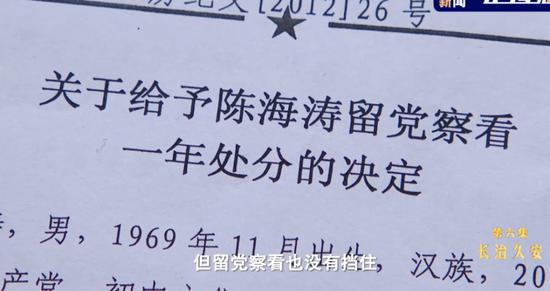 新闻
[2012]26号
关于给予陈海涛留党察看
一年处分的决定
，男，1969年11月出生，汉族，20
第六集
长治久安
但留党察看也没有挡住